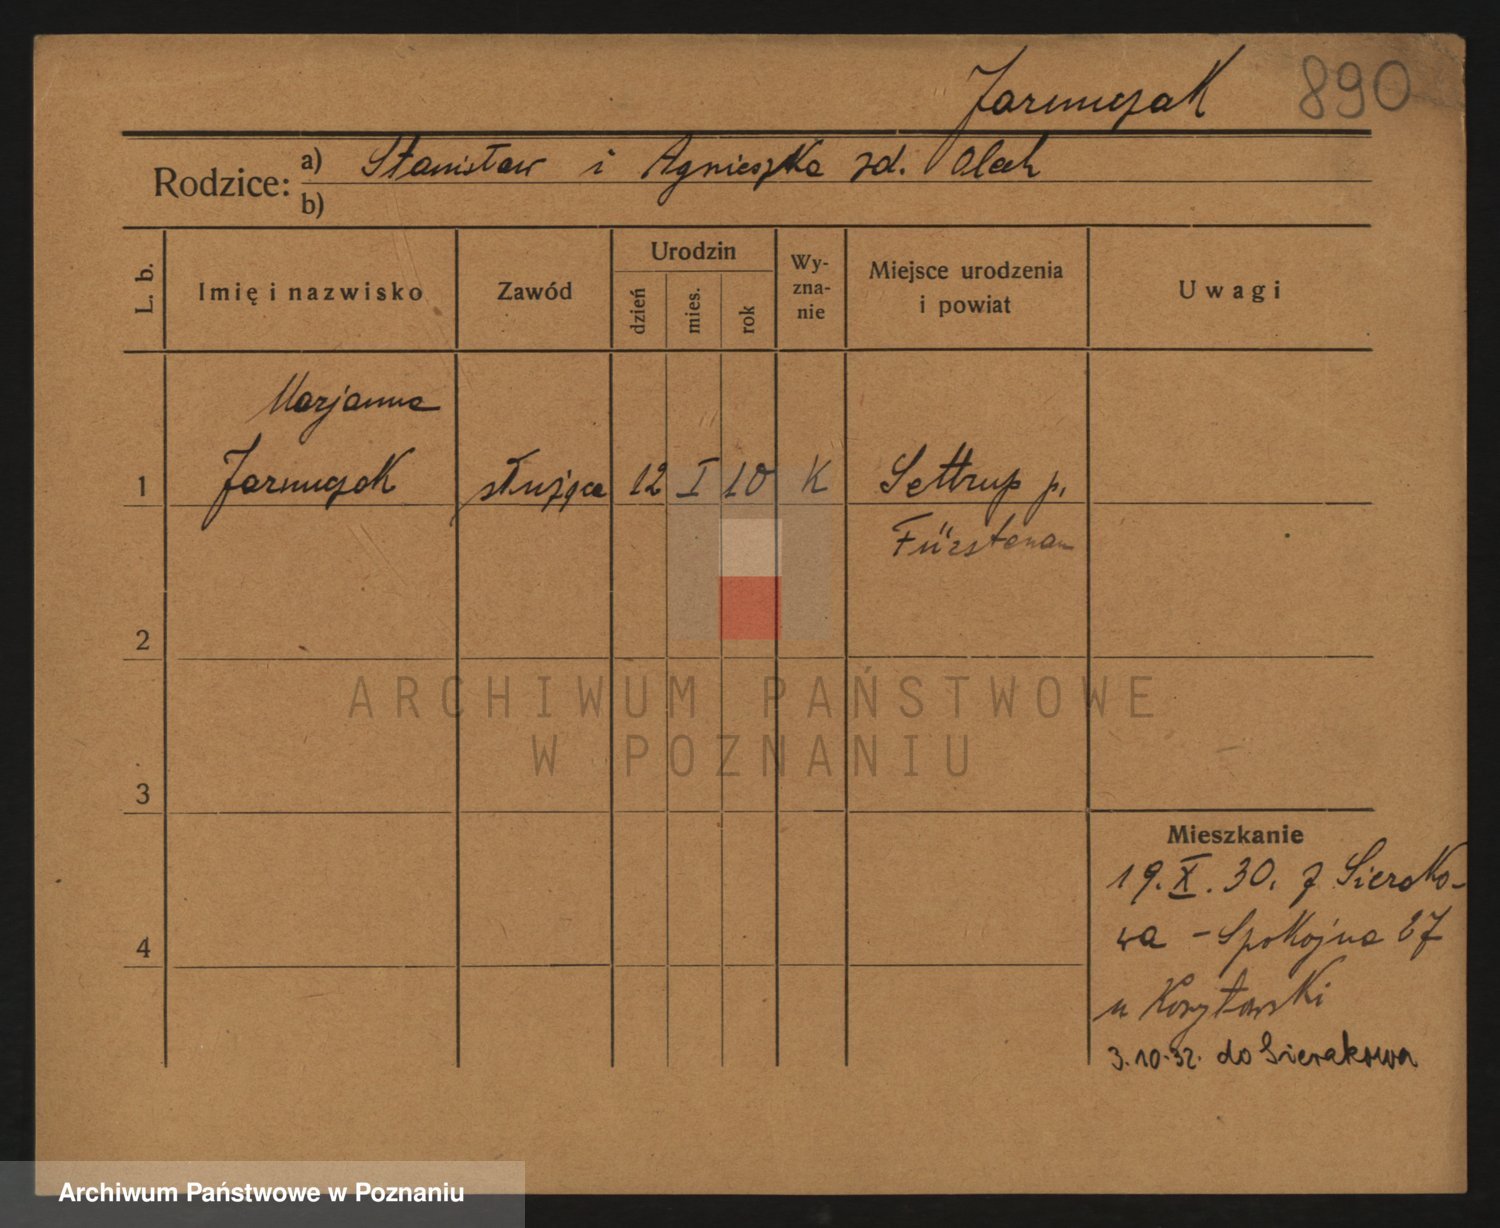 Jarmuzak
890
Rodzice:
a) Stanisław i Agnieszka zd. Olech
b)
L. b.
Imię i nazwisko
Zawód
Urodzin
dzień
mies.
rok
Wy-
zna-
nie
Miejsce urodzenia
i powiat
Uwagi
Marjanna
1 Jarmuzak służąca 12 I 10 K Settrup p.
Fürstenau
2
3
4
Mieszkanie
19. X. 30. z Sierako-
wa - Spokojna 27
u Korytowski
3.10.32. do Sierakowa
ARCHIWUM PAŃSTWOWE
W POZNANIU
Archiwum Państwowe w Poznaniu